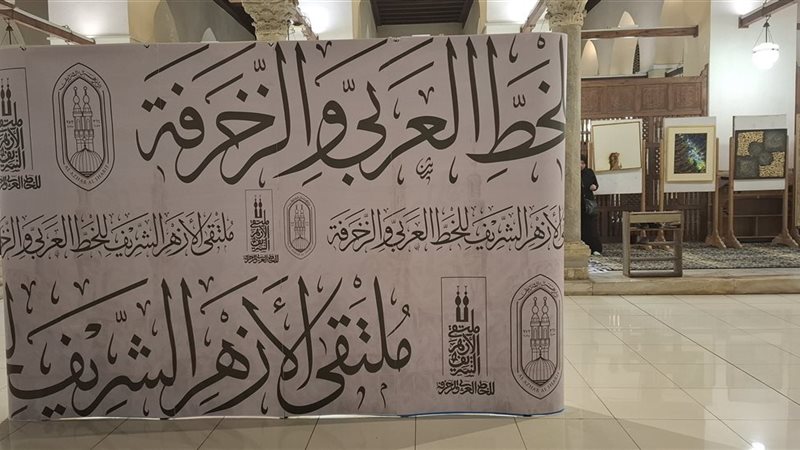 الخط العربي والزخرفة
ملتقى الأزهر الشريف للخط العربي والزخرفة
الأزهر الشريف للخط العربي والزخرفة
ملتقى الأزهر الشريف
ملتقى الأزهر الشريف للخط العربي والزخرفة
AL AZHAR AL SHARIF